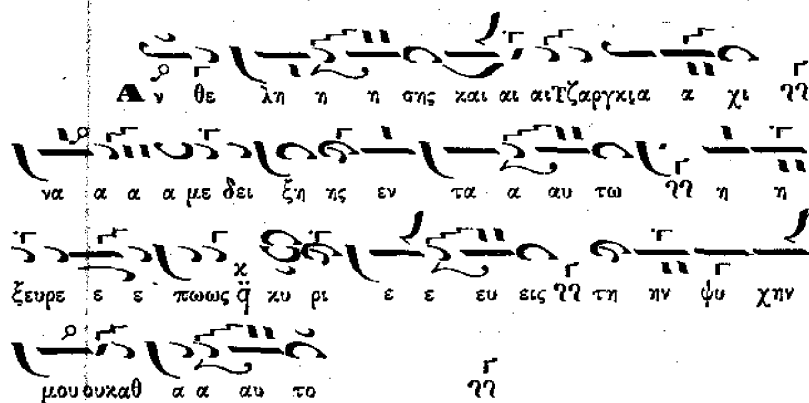 Αν θε λη η η σης και αι αι Τζαργκια α χι
να α α α με δει ξη ης εν τα α αυ τω η η
ξευρε ε ε πωως κυ ρι ε ε ευ εις τη ην ψυ χην
μου ουκαθ α α αυ το